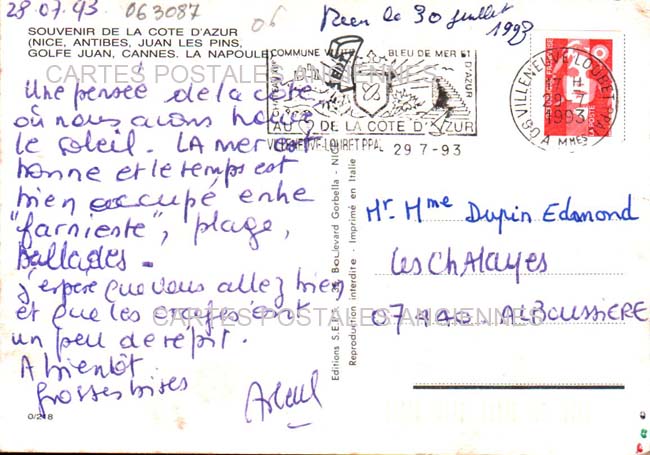 28.07.93
063087
06
Recu le 30 juillet
1993
SOUVENIR DE LA COTE D'AZUR
(NICE, ANTIBES, JUAN LES PINS,
GOLFE JUAN, CANNES. LA NAPOULE
CARTES POSTALES ANCIENNES
COMMUNE VERTE BLEU DE MER ET D'AZUR
AU DE LA COTE D'AZUR
VILLENEUVE-LOUBET PPAL 29 7-93
VILLENEUVE-LOUBET PPAL
17 H
29-7
1993
06 A. MMES
Une pensée de la côte
où nous avons
le soleil. LA mer est
bonne et le temps est
bien occupé entre
"farniente", plage,
Ballades.
J'espère que vous allez bien
et que les orages ont
un peu de répit.
A bientôt
Grosses bises
Mr. Mme Dupin Edmond
Les Chalayes
07440. ALBOUSSIERE
CARTES POSTALES ANCIENNES
Boulevard Gorbella - NICE
Reproduction interdite - Imprimé en Italie
0/218